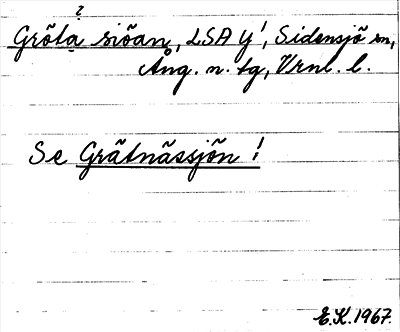 ?
Gröta siöan, LSA y!, Sidensjö sn,
Ång. n. tg, Vrnl. l.
Se Grätnässjön!
E.K. 1967.